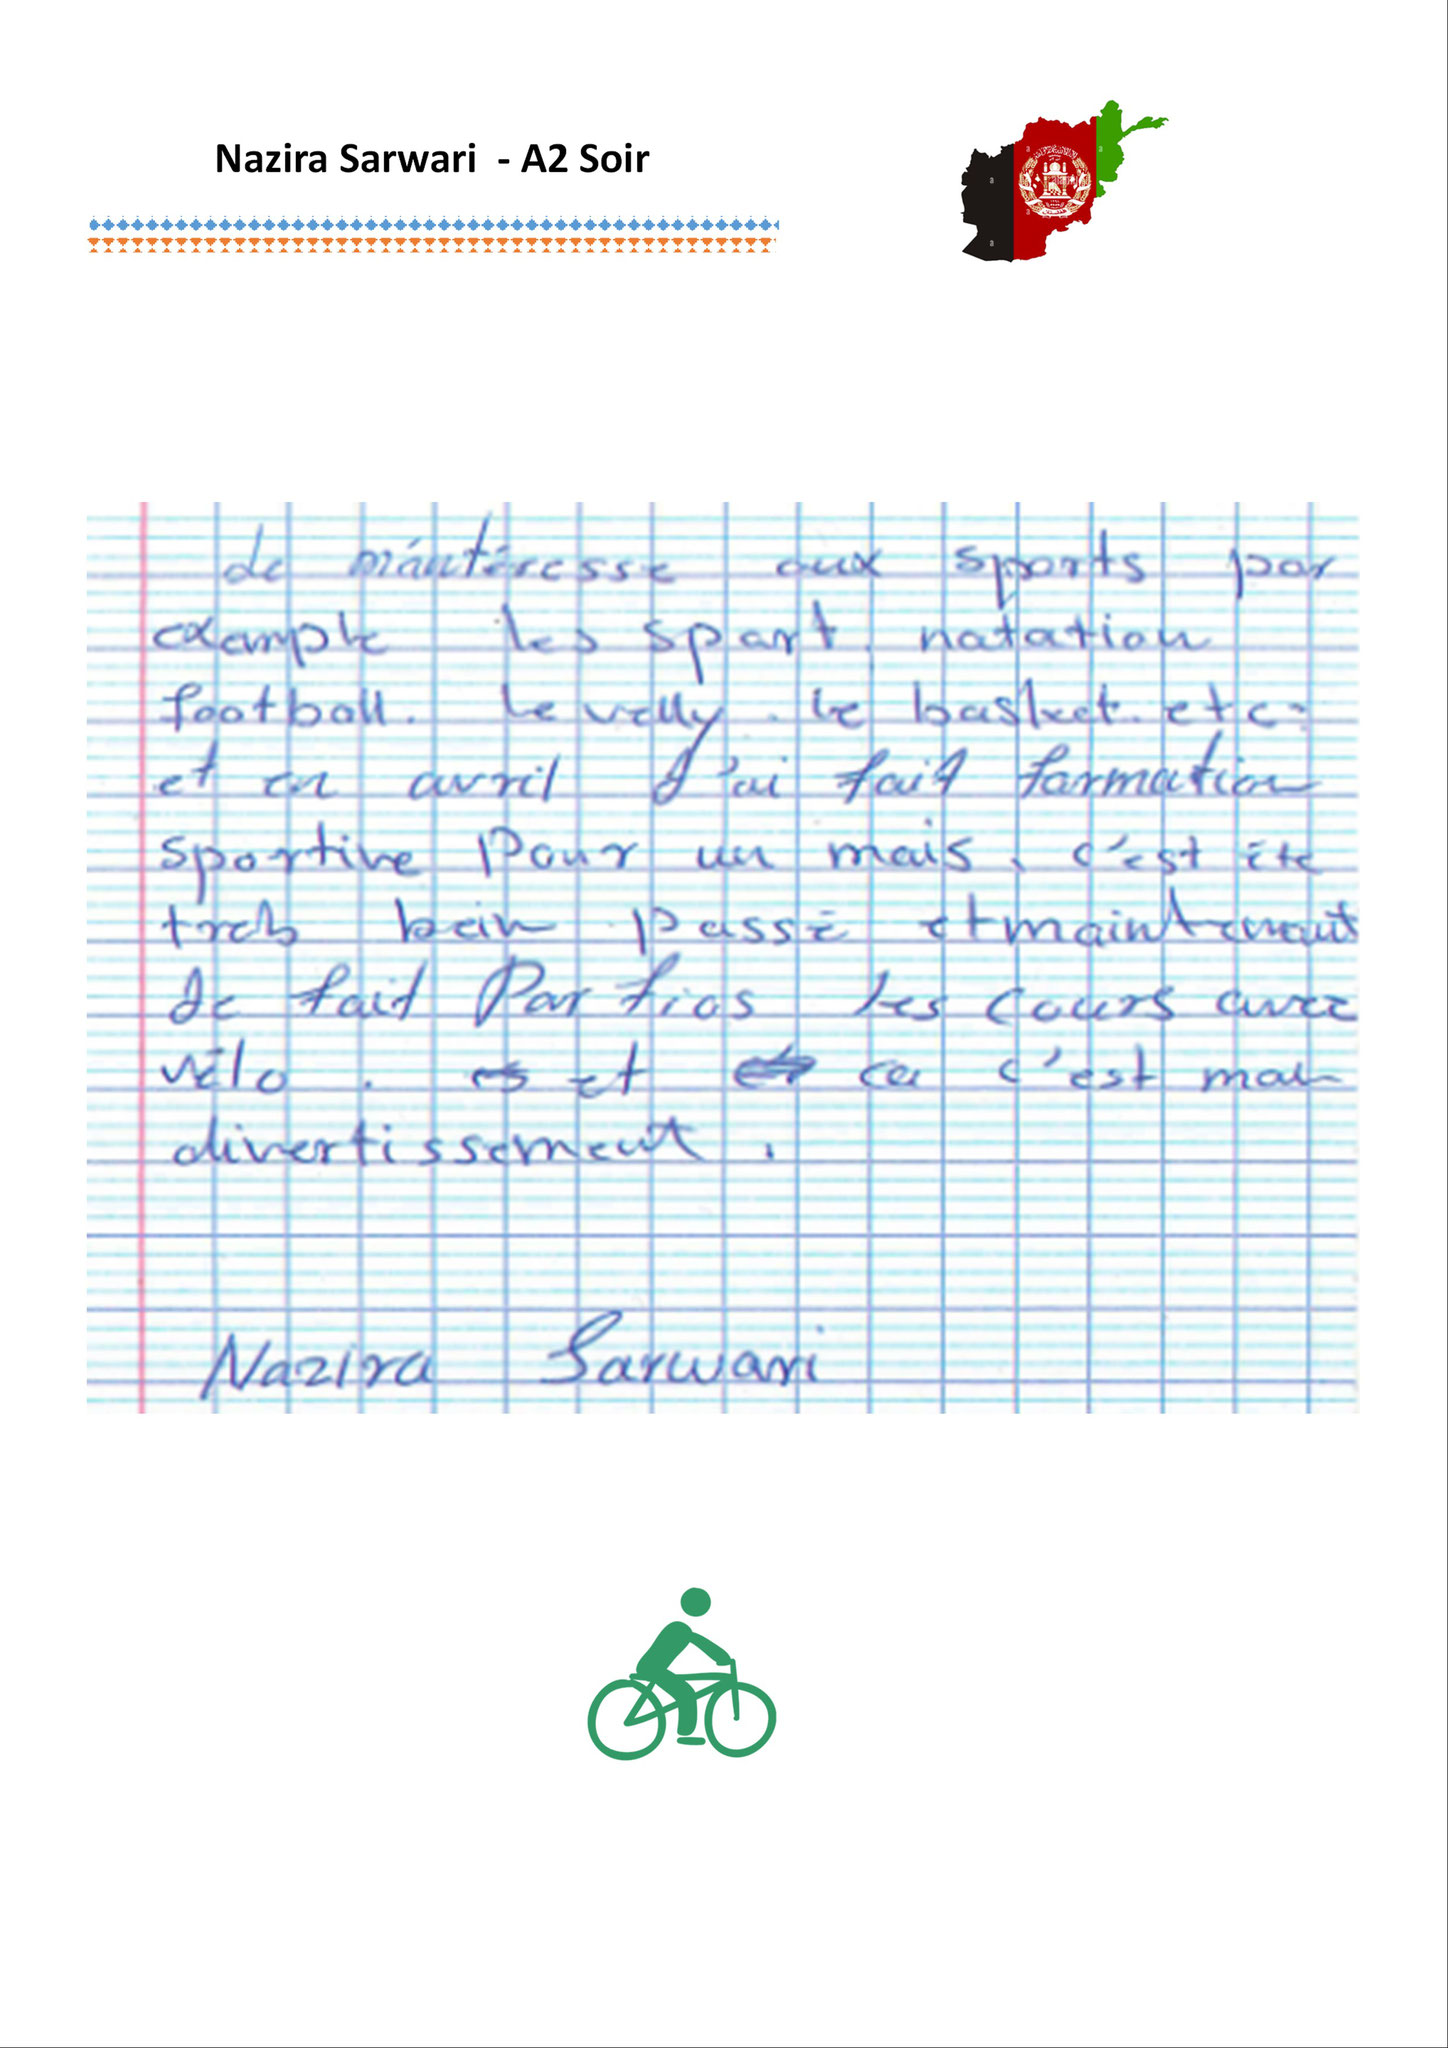 Nazira Sarwari - A2 Soir
Je m'intéresse aux sports par
exemple les sport. natation
football. le velly. le basket. etc:
et en avril J'ai fait formation
sportive Pour un mais. c'est été
treb bein passé et maintenant
Je fait Par fios les cours avec
vélo. et ca c'est mon
divertissement.
Nazira Sarwari